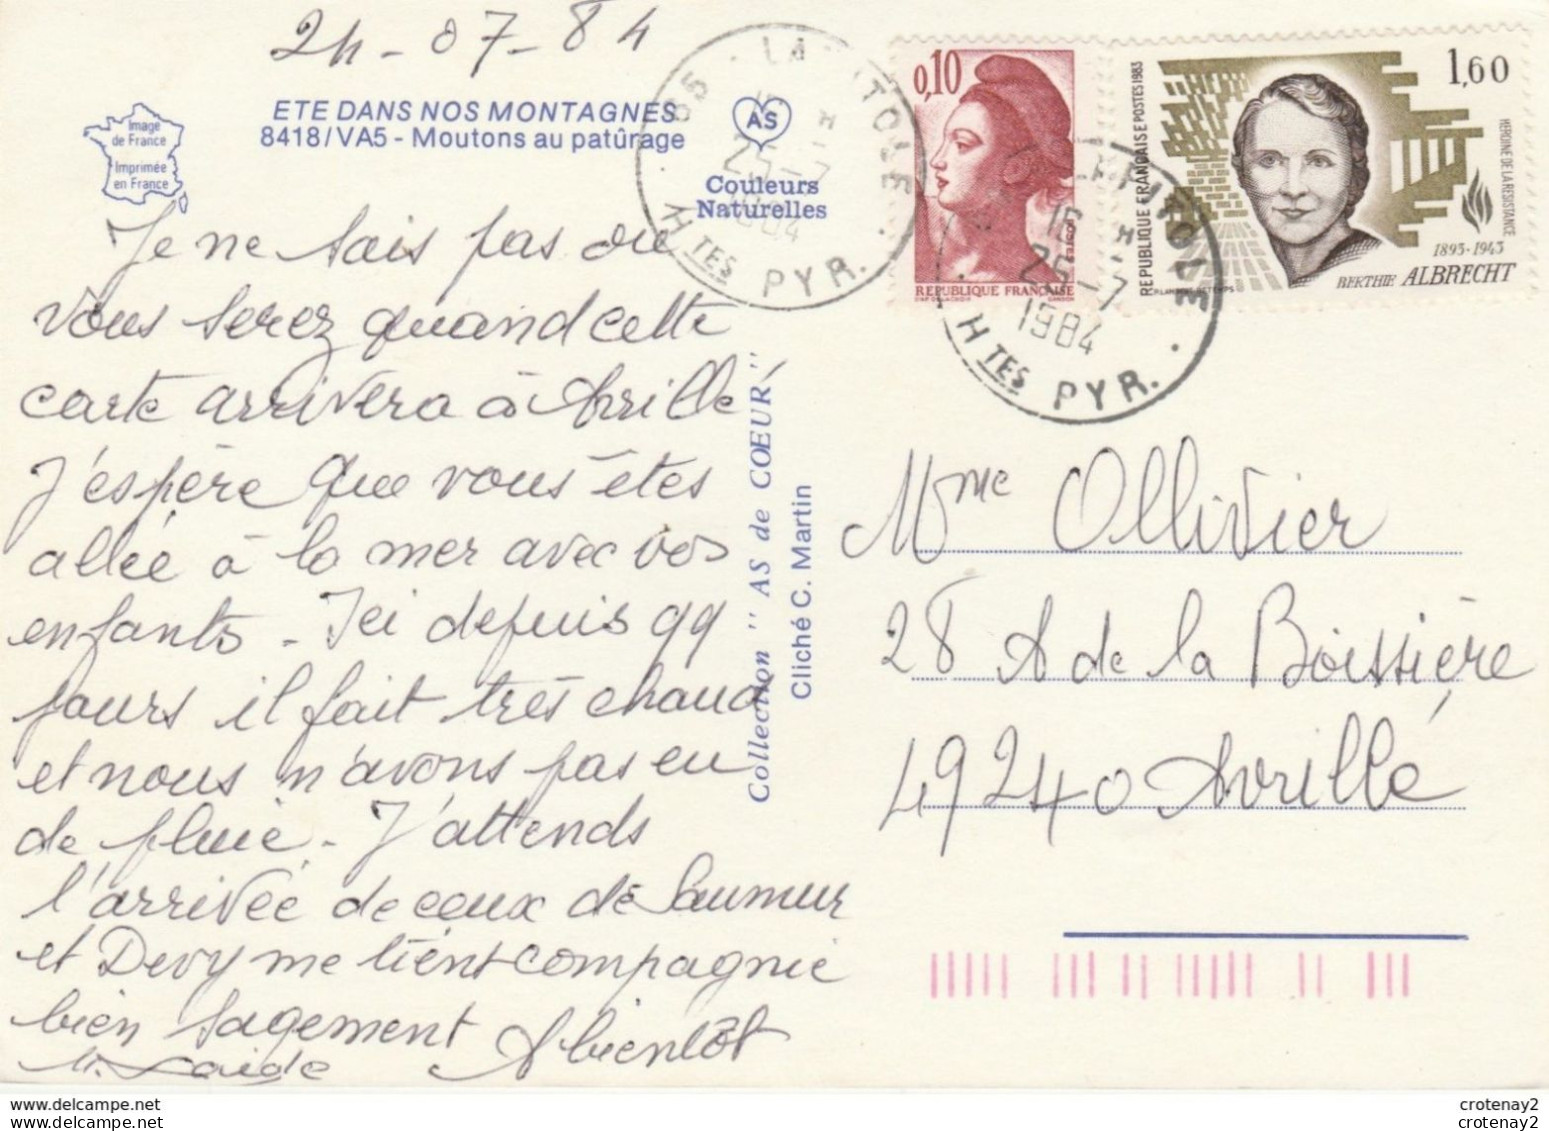 24-07-84
ETE DANS NOS MONTAGNES
8418/VA5 - Moutons au patûrage
Image
de France
Imprimée
en France
AS
Couleurs
Naturelles
65
25-7
1984
HTES PYR.
0,10
REPUBLIQUE FRANÇAISE
16 H
25-7
1984
HTES PYR.
1,60
REPUBLIQUE FRANÇAISE POSTES 1983
HEROINE DE LA RESISTANCE
1893-1943
BERTHIE ALBRECHT
Je ne sais pas où
vous serez quand cette
carte arrivera à Avrillé
J'espère que vous êtes
allée à la mer avec vos
enfants - Ici depuis qq
jours il fait très chaud
et nous n'avons pas eu
de pluie. J'attends
l'arrivée de ceux de Saumur
et Devy me tient compagnie
bien sagement A bientôt
Collection "AS de COEUR"
Cliché C. Martin
Mme Ollivier
28 A de la Boissière
49240 Avrillé
crotenay2
crotenay2